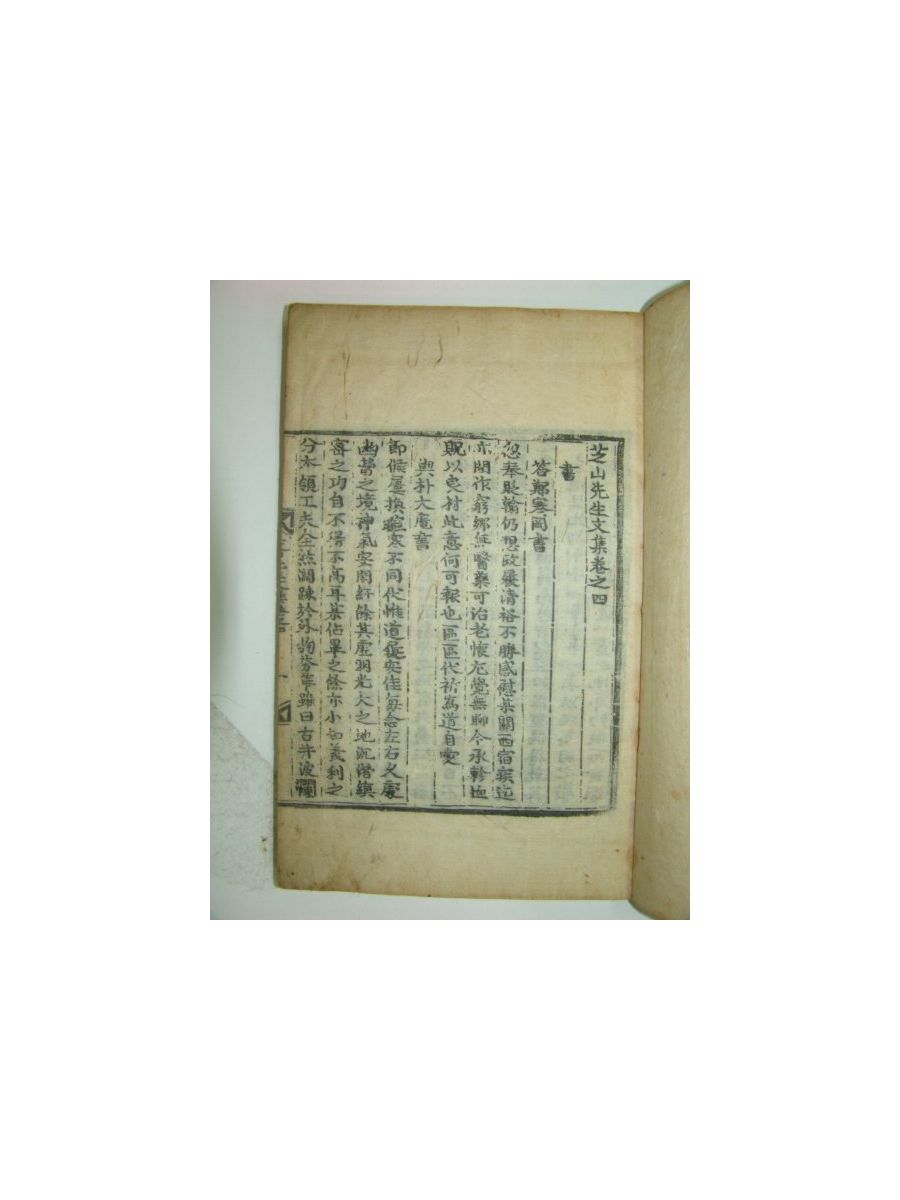 芝山先生文集卷之四
書
答鄭寒岡書
忽奉貺翰仍想政履淸裕不勝感慰某關西宿疾近
亦間作窮鄕無醫藥可治老懷尤覺無聊今承軫血
貺以良材此意何可報也區區代祈爲道自愛
與朴大庵書
卽候屢換暄寒不同伏惟道履安佳每念左右久處
幽蔚之境神氣安閒餘其虛明光大之地沉潛縝
密之功自不得不高耳某佔畢之餘亦小知義利之
分本領工夫全然濶踈於外物 雖曰古井波瀾